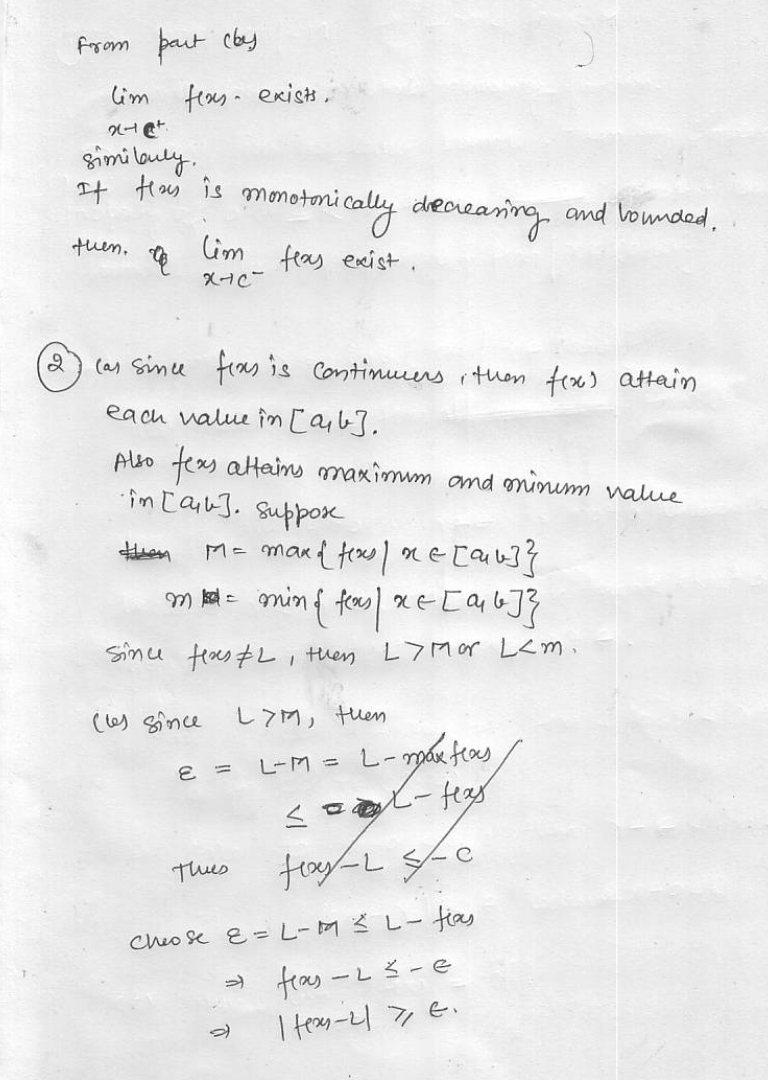 From part (b)
lim f(x). exists.
x→c+
similarly.
If f(x) is monotonically decreasing and bounded.
then. lim f(x) exist.
x→c-
2 (a) Since f(x) is continuous, then f(x) attain
each value in [a,b].
Also f(x) attains maximum and minimm value
in [a,b]. Suppose
then M = max{ f(x) | x ∈ [a,b]}
m = min{ f(x) | x ∈ [a,b]}
Since f(x) ≠ L, then L > M or L < m.
(b) since L > M, then
ε = L-M = L - max f(x)
≤ L - f(x)
Thus f(x) - L ≤ - ε
choose ε = L-M ≤ L - f(x)
⇒ f(x) - L ≤ - ε
⇒ |f(x)-L| ≥ ε.